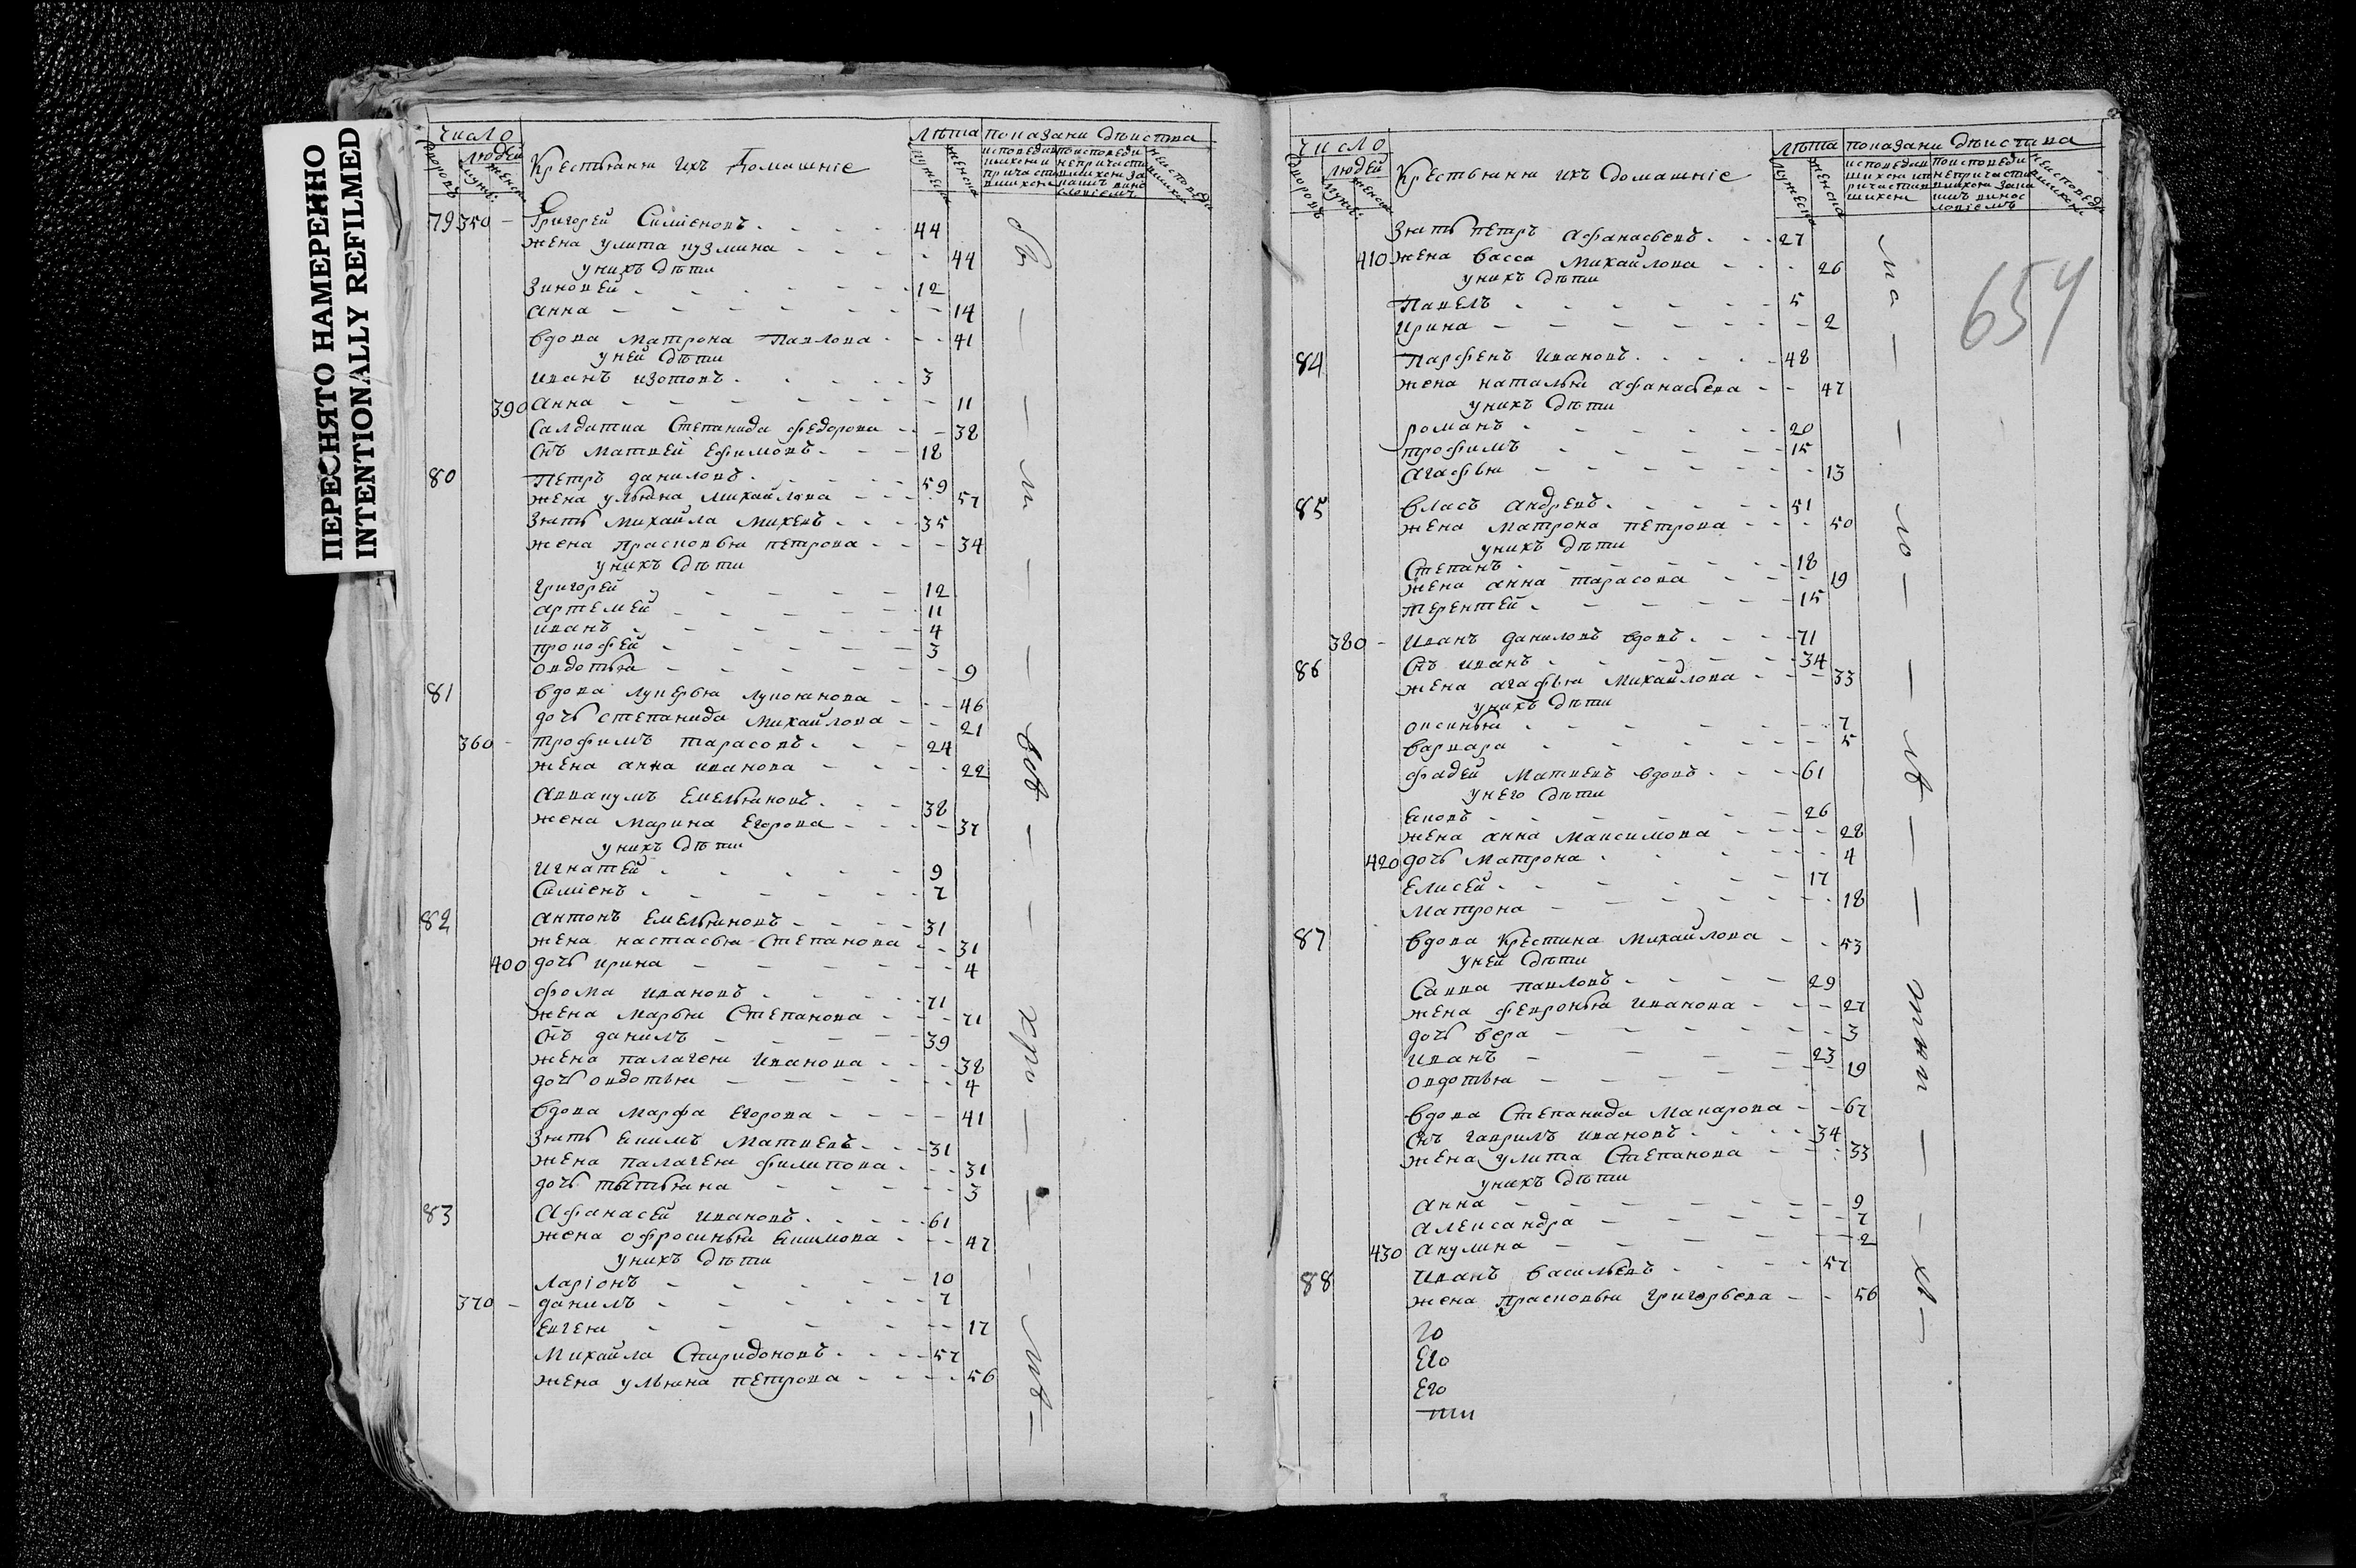 ПЕРЕСНЯТО НАМЕРЕННО
INTENTIONALLY REFILMED
число
людей
дворовъ
мужс:
женска
Крестьяня ихъ Домашніе
лѣта
мужеска
женска
показани действа
79 350 – Григорей Симіоновъ 44
жена улита кузмина 44
унихъ дѣти
Зиновей 12
анна 14
вдова матрона Павлова 41
уней дѣти
иванъ изотовъ 3
390 анна 11
Салдатка Степанида федорова 38
Снъ матвей Ефимовъ 18
80 Петръ даниловъ 59
жена ульяна михайлова 57
Зять михайла михевъ 35
жена прасковья петрова 34
унихъ дѣти
григорей 12
артемей 11
иванъ 4
прокофей 3
овдотья 9
81 вдова лукерья лукоянова 46
дочь степанида михайлова 21
360 – трофимъ тарасовъ 24
жена анна иванова 22
Аввакумъ Емельяновъ 38
жена марина Егорова 37
унихъ дѣти
игнатей 9
Симіонъ 7
82 антонъ Емельяновъ 31
жена настасья Степанова 31
400 дочь ирина 4
фома ивановъ 71
жена марья Степанова 71
Снъ данилъ 39
жена палагея иванова 38
дочь овдотья 4
вдова марфа Егорова 41
Зять якимъ матвевъ 31
жена палагея филипова 31
дочь татьяна 3
83 афанасей ивановъ 61
жена офросинья якимова 47
унихъ дѣти
ларіонъ 10
370 – данилъ 7
Евгеня 17
Михайла Спиридоновъ 57
жена ульяна петрова 56
число
людей
дворовъ
мужс:
женска
Крестьяня ихъ домашніе
лѣта
мужеска
женска
показани действа
654
Зять петръ афанасьевъ 27
410 жена васса михайлова 26
унихъ дѣти
Павелъ 5
ирина 2
84 Парфенъ ивановъ 48
жена наталья афанасьева 47
унихъ дѣти
романъ 20
трофимъ 15
агафья 13
85 власъ андревъ 51
жена матрона петрова 50
унихъ дѣти
Степанъ 18
жена анна тарасова 19
терентей 15
380 – иванъ даниловъ вдовъ 71
86 Снъ иванъ 34
жена агафья михайлова 33
унихъ дѣти
оксинья 7
варвара 5
фадей матвевъ вдовъ 61
унего дѣти
яковъ 26
жена анна максимова 28
420 дочь матрона 4
Елисей 17
матрона 18
87 вдова Крестина михайлова 53
уней дѣти
Савва павловъ 29
жена февронья иванова 27
дочь вера 3
иванъ 23
овдотья 19
вдова Степанида макарова 67
Снъ гаврилъ ивановъ 34
жена улита Степанова 33
унихъ дѣти
анна 9
александра 7
430 акулина 2
88 иванъ васильевъ 57
жена прасковья григорьева 56
го
Его
Его
ти